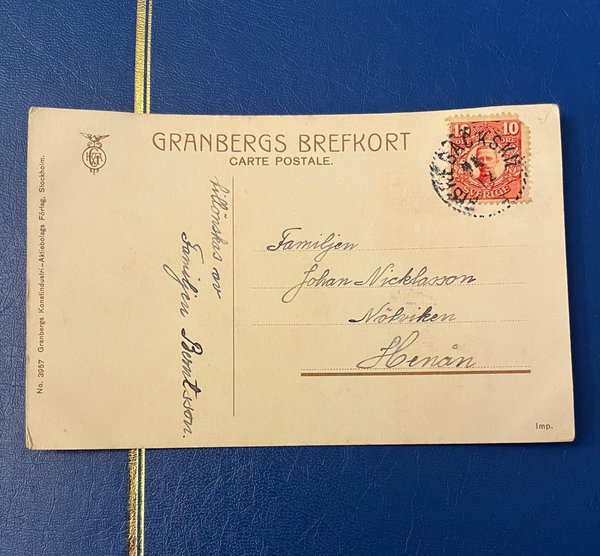 GRANBERGS BREFKORT
CARTE POSTALE.
10 10
SVERIGE
tillönskas av
Familjen Berntsson.
Familjen
Johan Nicklasson
Nötviken
Henån
No. 3957 Granbergs Konstindustri-Aktiebolags Förlag, Stockholm.
Imp.